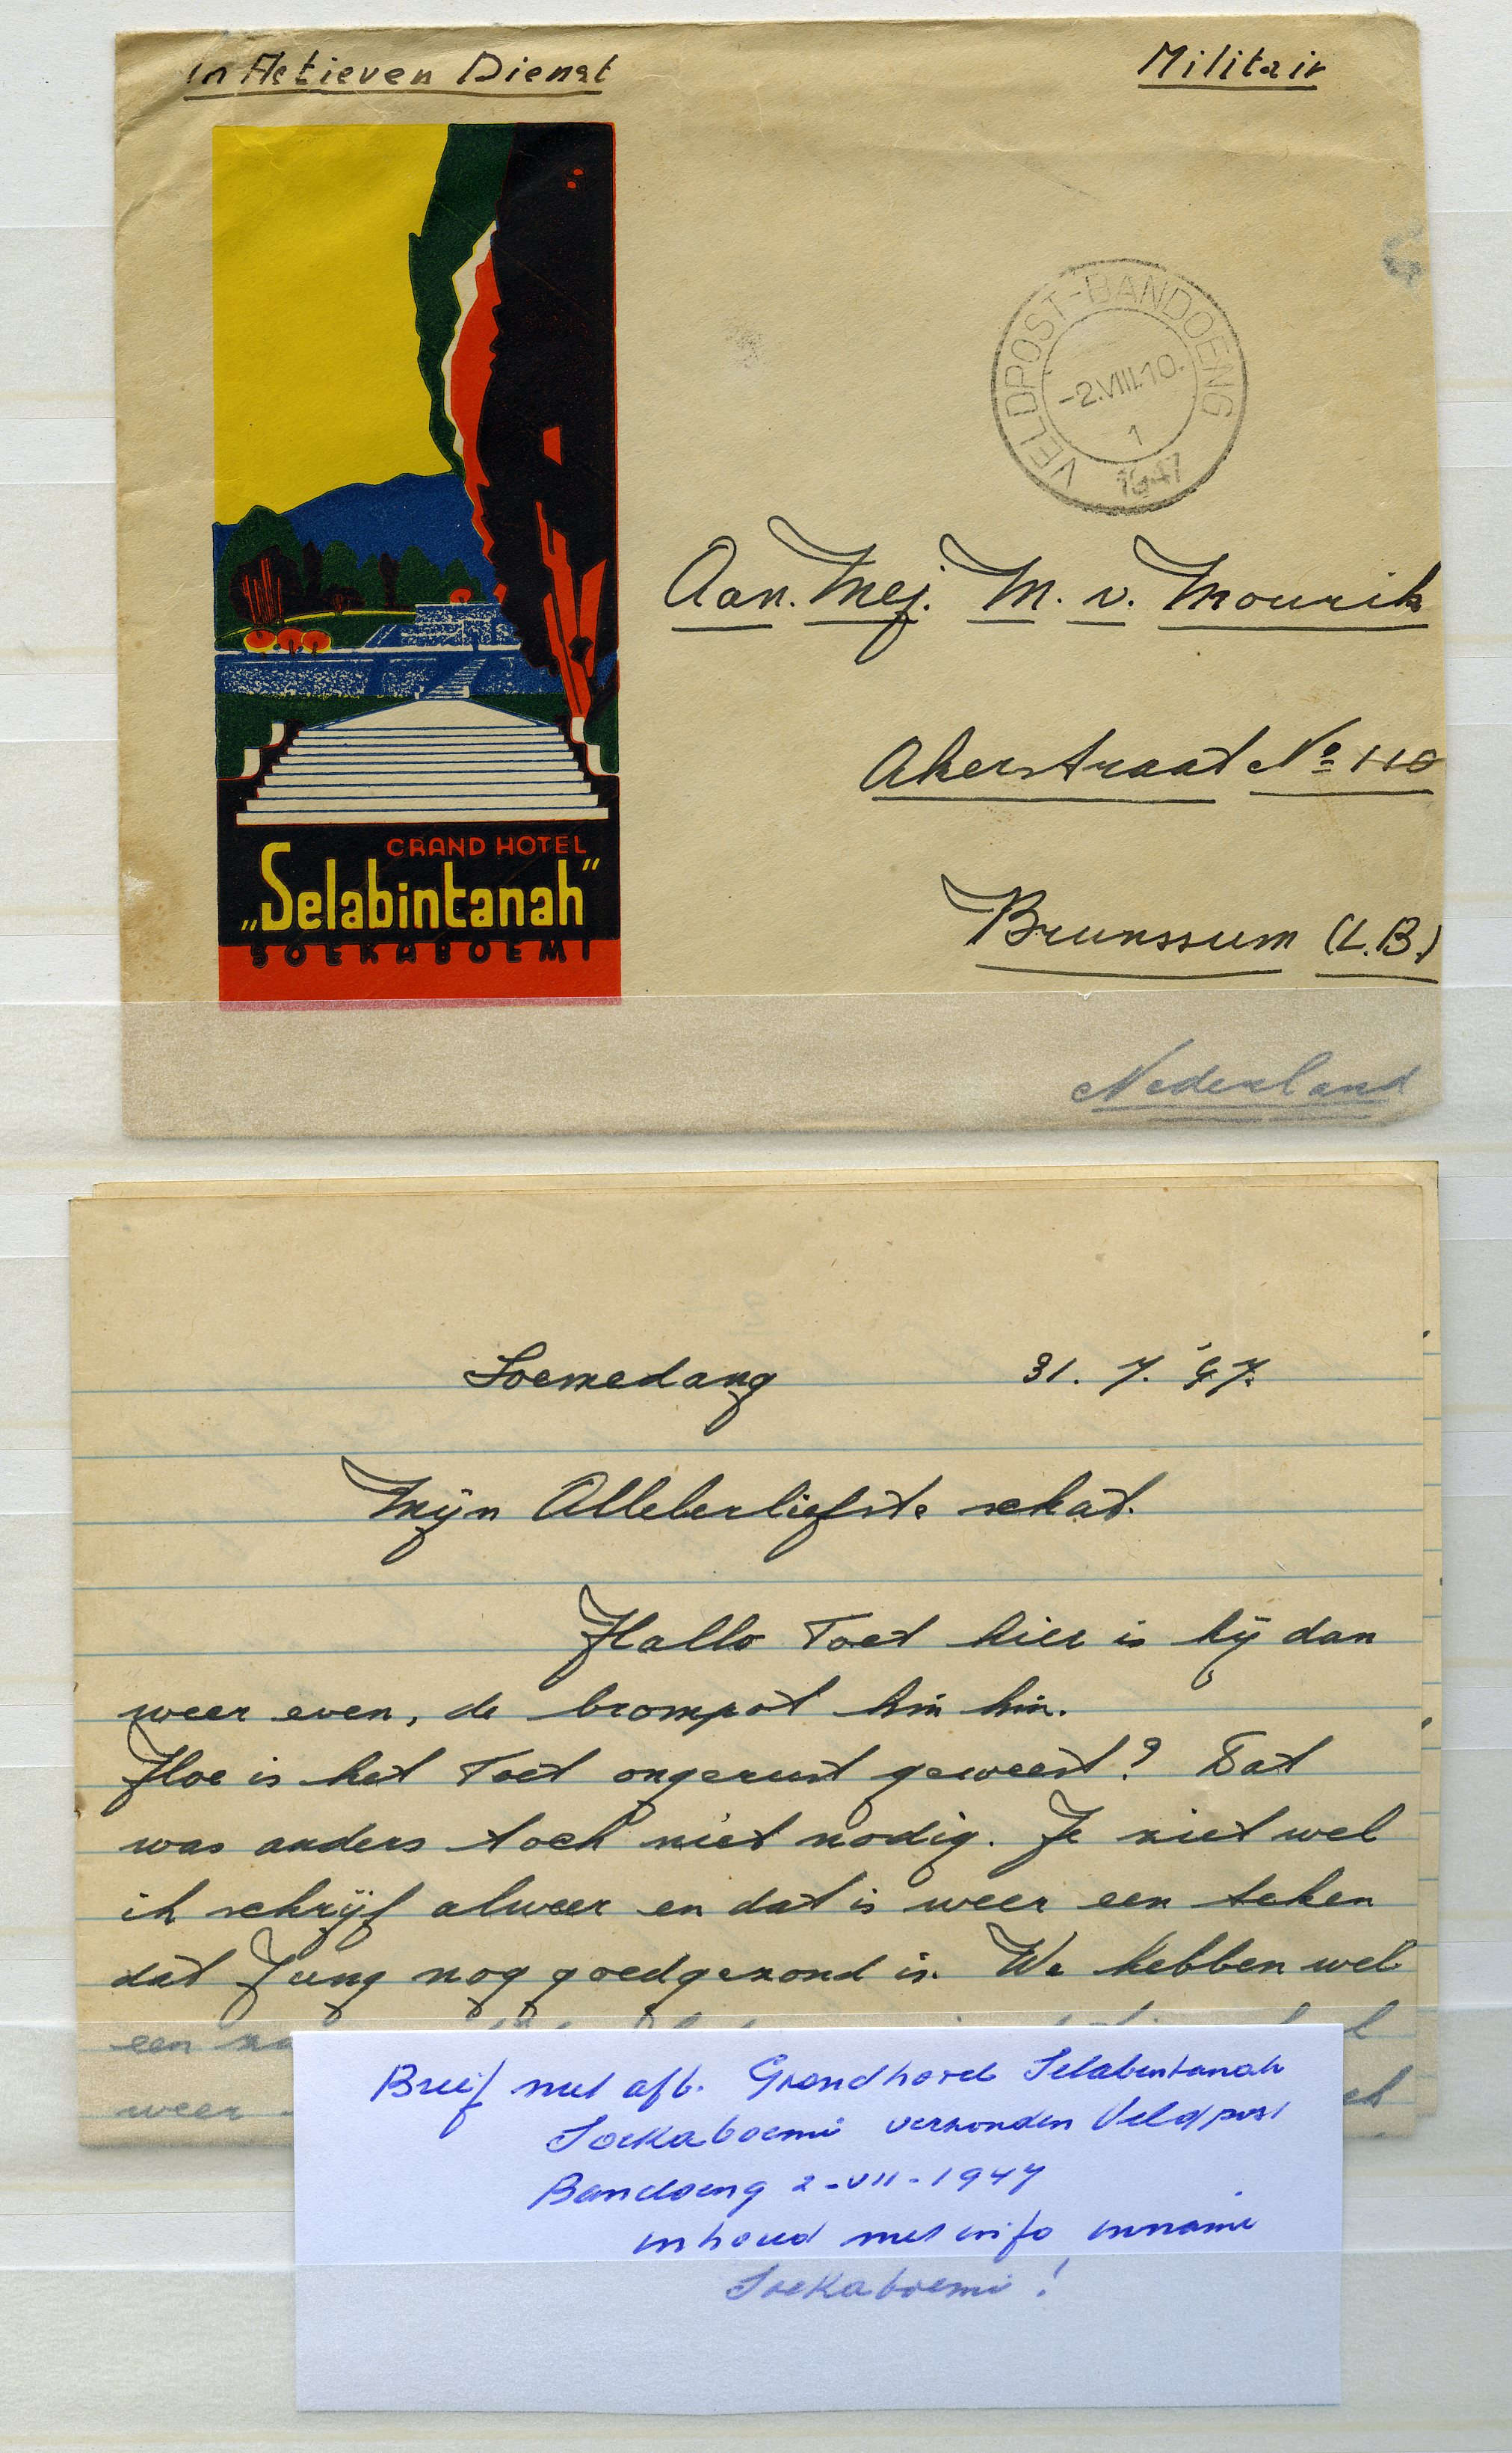 In Actieven Dienst
Militair
VELDPOST-BANDOENG
-2.VIII.10.
1
1947
Aan. Mej. M. v. Mourik
Akerstraat No 110
Brunssum (L.B.)
Nederland
GRAND HOTEL
„Selabintanah”
SOEKABOEMI
Soemedang 31. 7. '47.
Mijn Allelerliefste schat.
Hallo Toet hier is hij dan
weer even, de brompot hm hm.
Hoe is het Toet ongerust geweest? Dat
was anders toch niet nodig. Je ziet wel
ik schrijf alweer en dat is weer een teken
dat Jung nog goedgezond is. We hebben wel
een
weer
Brief met afb. Grandhotel Selabintanah
Soekaboemi verzonden Veldpost
Bandoeng 2-VII-1947
inhoud met info inname
Soekaboemi!